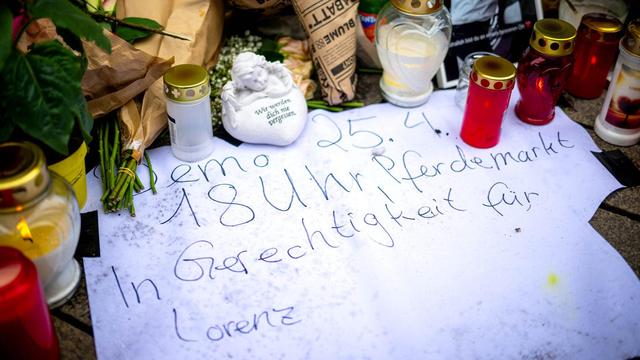 BLUME
Wir werden
dich nie
vergessen.
Demo 25.4.
18 Uhr Pferdemarkt
In Gerechtigkeit für
Lorenz